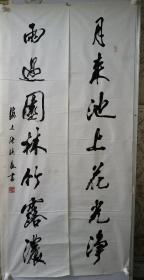 月来池上花光净
雨过園林竹露濃